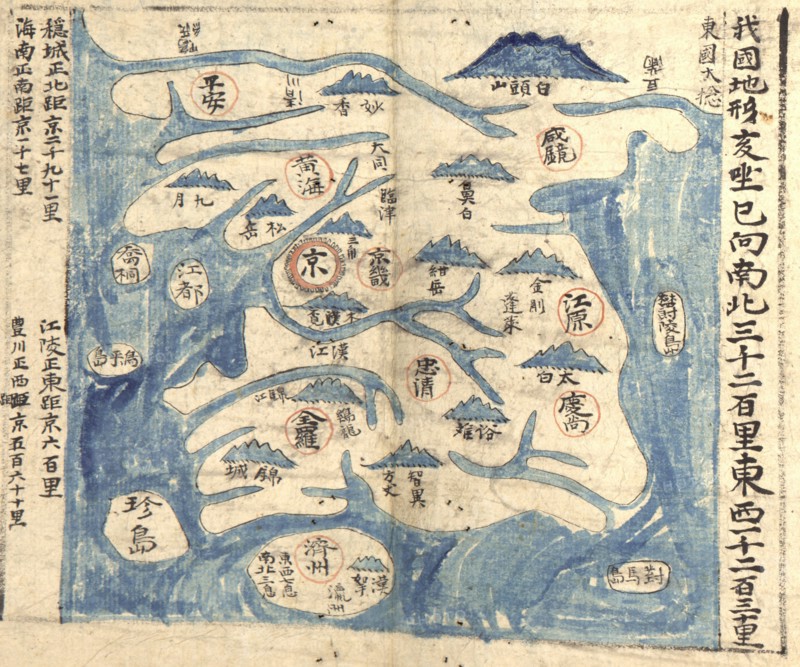 我國地形亥坐巳向南北三千二百里東西一千二百三十里
東國大捴
白頭山
豆滿
咸鏡
妙香
清川
平安
大同
黃海
臨津
鼻白
九月
松岳
三角
京
京畿
紺岳
金剛
蓬萊
江原
木覓
漢江
忠清
太白
慶尚
俗離
錦江
鷄龍
全羅
錦城
智異
方丈
濟州
漢拏
瀛州
東西七息
南北三息
對馬島
喬桐
江都
珍島
穩城正北距京二千九十一里
海南正南距京一千七里
江陵正東距京六百里
豊川正西距京五百六十里